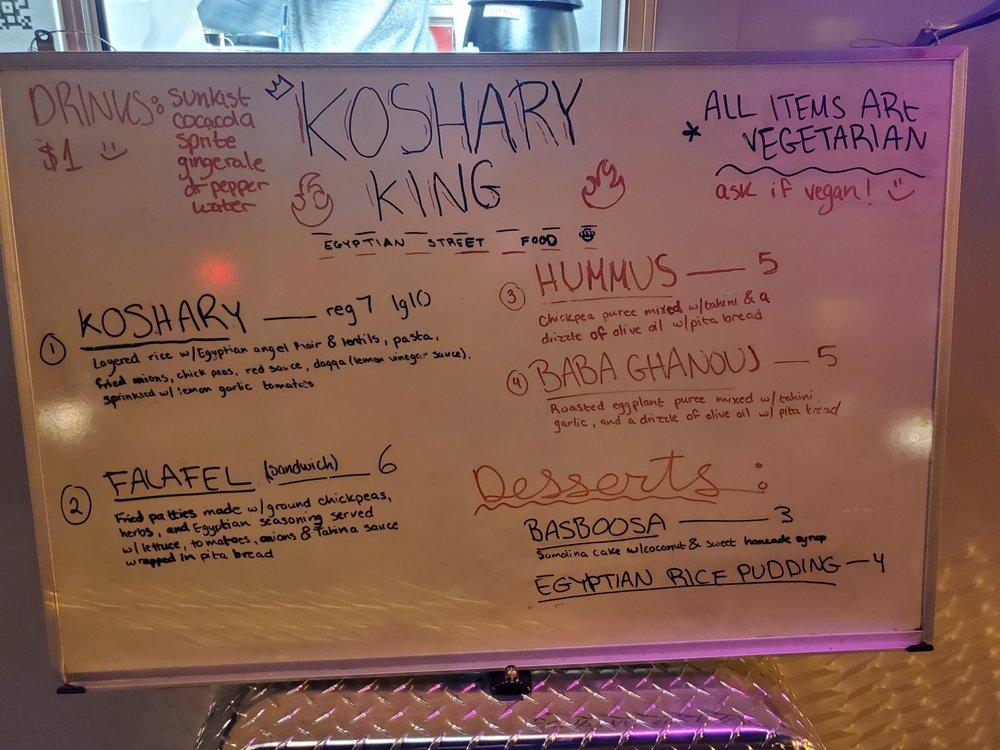 DRINKS:
$1
sunkist
cocacola
sprite
gingerale
dr pepper
water
KOSHARY
KING
EGYPTIAN STREET FOOD
* ALL ITEMS ARE
VEGETARIAN
ask if vegan!
1 KOSHARY — reg 7 lg 10
Layered rice w/Egyptian angel hair & lentils, pasta,
fried onions, chick peas, red sauce, dagga (lemon vinegar sauce),
sprinkled w/ lemon garlic tomatoes
2 FALAFEL (sandwich) — 6
Fried patties made w/ground chickpeas,
herbs, and Egyptian seasoning served
w/lettuce, tomatoes, onions & Tahina sauce
wrapped in pita bread
3 HUMMUS — 5
Chickpea puree mixed w/tahini & a
drizzle of olive oil w/pita bread
4 BABA GHANOUJ — 5
Roasted eggplant puree mixed w/tahini
garlic, and a drizzle of olive oil w/ pita bread
Desserts:
BASBOOSA — 3
Sumolina cake w/coconut & sweet homeade syrup
EGYPTIAN RICE PUDDING — 4